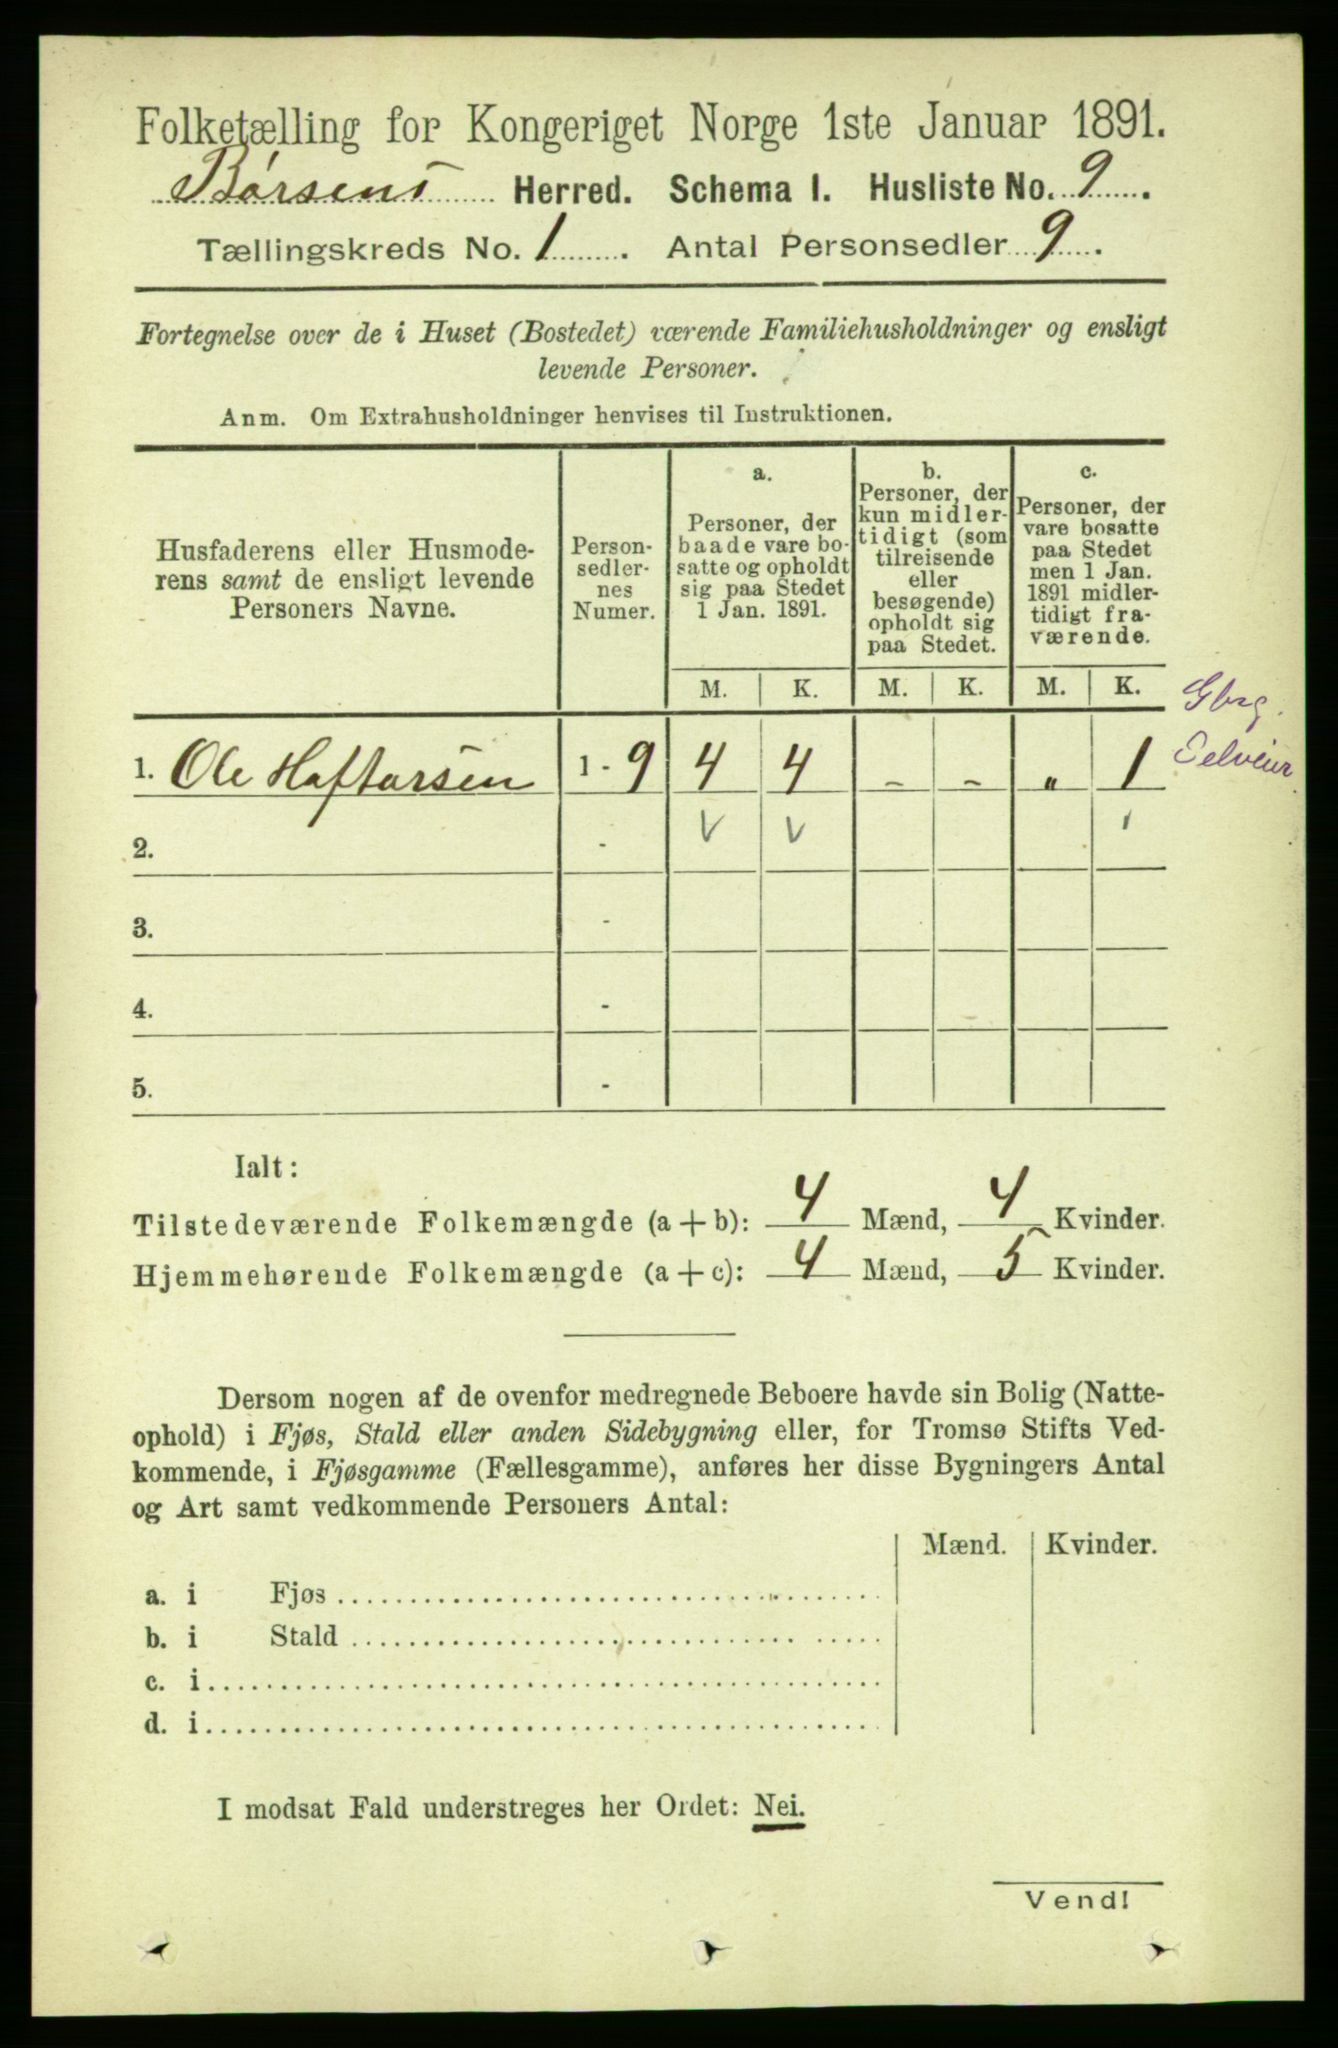 Folketælling for Kongeriget Norge 1ste Januar 1891.
Børsens Herred. Schema 1. Husliste No. 9.
Tællingskreds No. 1. Antal Personsedler 9.
Fortegnelse over de i Huset (Bostedet) værende Familiehusholdninger og ensligt
levende Personer.
Anm. Om Extrahusholdninger henvises til Instruktionen.
Husfaderens eller Husmode-
rens samt de ensligt levende
Personers Navne.
Person-
sedler-
nes
Numer.
a.
Personer, der
baade vare bo-
satte og opholdt
sig paa Stedet
1 Jan. 1891.
b.
Personer, der
kun midler-
tidigt (som
tilreisende
eller
besøgende)
opholdt sig
paa Stedet.
c.
Personer, der
vare bosatte
paa Stedet
men 1 Jan.
1891 midler-
tidigt fra-
værende.
M. K. M. K. M. K.
Gbrg.
1. Ole Haftorsen 1 - 9 4 4 - - " 1
2. - V V
3. -
4. -
5. -
Ialt:
Tilstedeværende Folkemængde (a + b): 4 Mænd, 4 Kvinder.
Hjemmehørende Folkemængde (a + c): 4 Mænd, 5 Kvinder.
Dersom nogen af de ovenfor medregnede Beboere havde sin Bolig (Natte-
ophold) i Fjøs, Stald eller anden Sidebygning eller, for Tromsø Stifts Ved-
kommende, i Fjøsgamme (Fællesgamme), anføres her disse Bygningers Antal
og Art samt vedkommende Personers Antal:
Mænd. Kvinder.
a. i Fjøs
b. i Stald
c. i
d. i
I modsat Fald understreges her Ordet: Nei.
Vend!